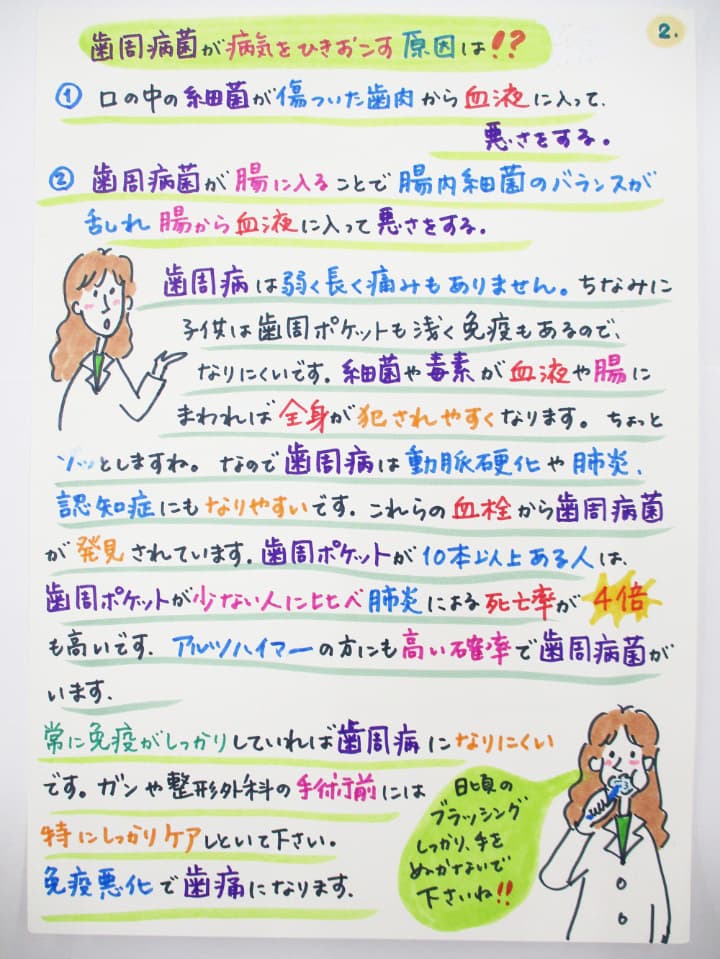 2.
歯周病菌が病気をひきおこす原因は!?
① 口の中の細菌が傷ついた歯肉から血液に入って、
悪さをする。
② 歯周病菌が腸に入ることで腸内細菌のバランスが
乱れ腸から血液に入って悪さをする。
歯周病は弱く長く痛みもありません。ちなみに
子供は歯周ポケットも浅く免疫もあるので、
なりにくいです。細菌や毒素が血液や腸に
まわれば全身が犯されやすくなります。ちょっと
ゾッとしますね。なので歯周病は動脈硬化や肺炎、
認知症にもなりやすいです。これらの血栓から歯周病菌
が発見されています。歯周ポケットが10本以上ある人は、
歯周ポケットが少ない人に比べ肺炎による死亡率が4倍
も高いです。アルツハイマーの方にも高い確率で歯周病菌が
います。
常に免疫がしっかりしていれば歯周病になりにくい
です。ガンや整形外科の手術前には
特にしっかりケアしといて下さい。
免疫悪化で歯痛になります。
日頃の
ブラッシング
しっかり、手を
ぬかないで
下さいね!!